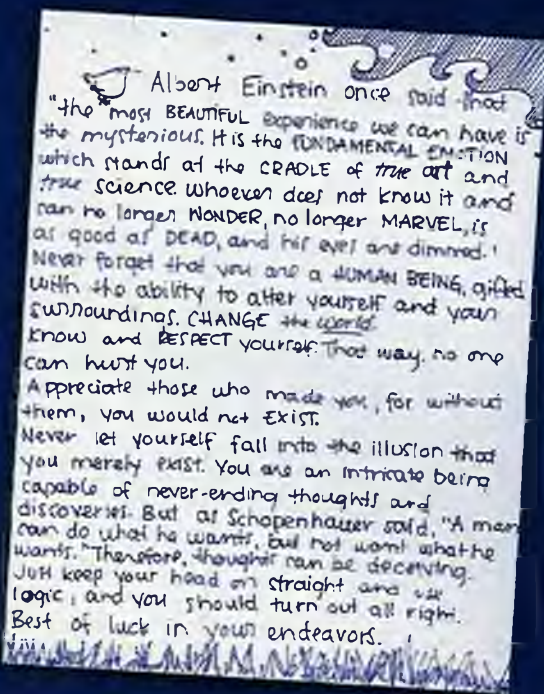 Albert Einstein once said that
"the most BEAUTIFUL experience we can have is
the mysterious. It is the FUNDAMENTAL EMOTION
which stands at the CRADLE of true art and
true science. Whoever does not know it and
can no longer WONDER, no longer MARVEL, is
as good as DEAD, and his eyes are dimmed.'
Never forget that you are a HUMAN BEING, gifted
with the ability to alter yourself and your
surroundings. CHANGE the world.
Know and RESPECT yourself. That way, no one
can hurt you.
Appreciate those who made you, for without
them, you would not EXIST.
Never let yourself fall into the illusion that
you merely exist. You are an intricate being
capable of never-ending thoughts and
discoveries. But as Schopenhauer said, "A man
can do what he wants, but not want what he
wants." Therefore, thoughts can be deceiving.
Just keep your head on straight and use
logic, and you should turn out all right.
Best of luck in your endeavors.